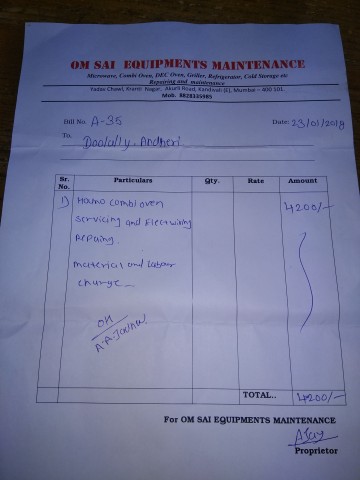 OM SAI EQUIPMENTS MAINTENANCE
Microwave, Combi Oven, DEC Oven, Griller, Refrigerator, Cold Storage etc
Repairing and maintenance
Yadav Chawl, Kranti Nagar, Akurli Road, Kandivali (E), Mumbai – 400 101.
Mob. 8828335985
Bill No. A-35
Date: 23/01/2018
To, Doolally, Andheri
Sr. No. Particulars Qty. Rate Amount
1) Hamo combi oven 4200/-
servicing and Electwiring
Repairing.
material and labour
charge -
OK
A.A. Jadhav
TOTAL.. 4200/-
For OM SAI EQUIPMENTS MAINTENANCE
Ajay
Proprietor